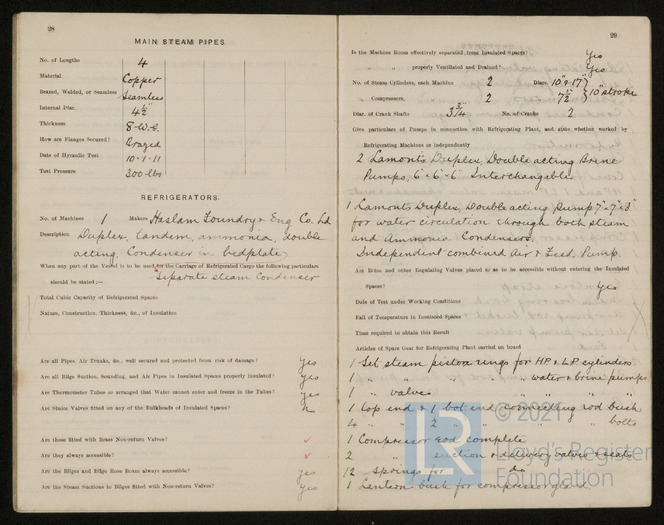 28
MAIN STEAM PIPES.
No. of Lengths 4
Material Copper
Brazed, Welded, or Seamless Seamless
Internal Diar. 4½"
Thickness 8-W.G.
How are Flanges Secured? Brazed
Date of Hydraulic Test 10-1-11
Test Pressure 300 lbs
REFRIGERATORS.
No. of Machines 1 Makers Haslam Foundry & Eng Co. Ld
Description Duplex, tandem, ammonia, double
acting, Condenser in bedplate,
When any part of the Vessel is to be used for the Carriage of Refrigerated Cargo the following particulars
should be stated :— Separate steam Condenser
Total Cubic Capacity of Refrigerated Spaces
Nature, Construction, Thickness, &c., of Insulation
Are all Pipes, Air Trunks, &c., well secured and protected from risk of damage? Yes
Are all Bilge Suction, Sounding, and Air Pipes in Insulated Spaces properly insulated? Yes
Are Thermometer Tubes so arranged that Water cannot enter and freeze in the Tubes? Yes
Are Sluice Valves fitted on any of the Bulkheads of Insulated Spaces?
Are these fitted with Brass Non-return Valves?
Are they always accessible?
Are the Bilges and Bilge Rose Boxes always accessible? Yes
Are the Steam Suctions in Bilges fitted with Non-return Valves? Yes
29
Is the Machine Room effectively separated from Insulated Spaces? Yes
" " properly Ventilated and Drained? Yes
No. of Steam Cylinders, each Machine 2 Diars. 10" & 17"
" Compressors, " 2 " 7½" } 10" stroke
Diar. of Crank Shafts 3¾ No. of Cranks 2
Give particulars of Pumps in connection with Refrigerating Plant, and state whether worked by
Refrigerating Machines or independently
2 Lamonts Duplex, Double acting Brine
Pumps, 6"-6"-6" Interchangeable
1 Lamonts Duplex, Double acting Pump 7"-7"-8"
for water circulation through both steam
and Ammonia Condensers.
Independent combined Air & Feed Pump.
Are Brine and other Regulating Valves placed so as to be accessible without entering the Insulated
Spaces? Yes
Date of Test under Working Conditions
Fall of Temperature in Insulated Spaces
Time required to obtain this Result
Articles of Spare Gear for Refrigerating Plant carried on board
1 Set steam piston rings for HP & LP cylinders
1 " " " " " water & brine pumps
1 " valves
1 top end & 1 bot. end connecting rod bush
4 " 2 " " bolts
1 Compressor rod complete
2 " suction & delivery valves & seats
12 springs for do
1 Lantern bush for compressor gland
© 2021
LR
Lloyd's Register
Foundation